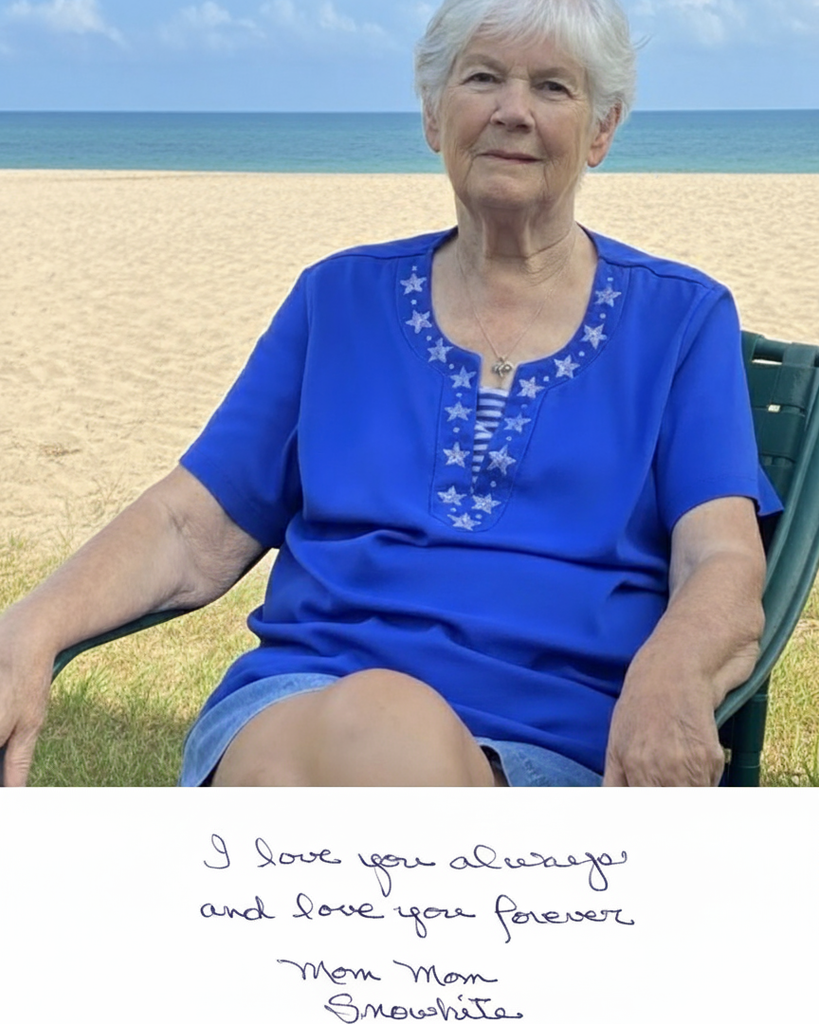 I love you always
and love you forever
Mom Mom
Snowhite